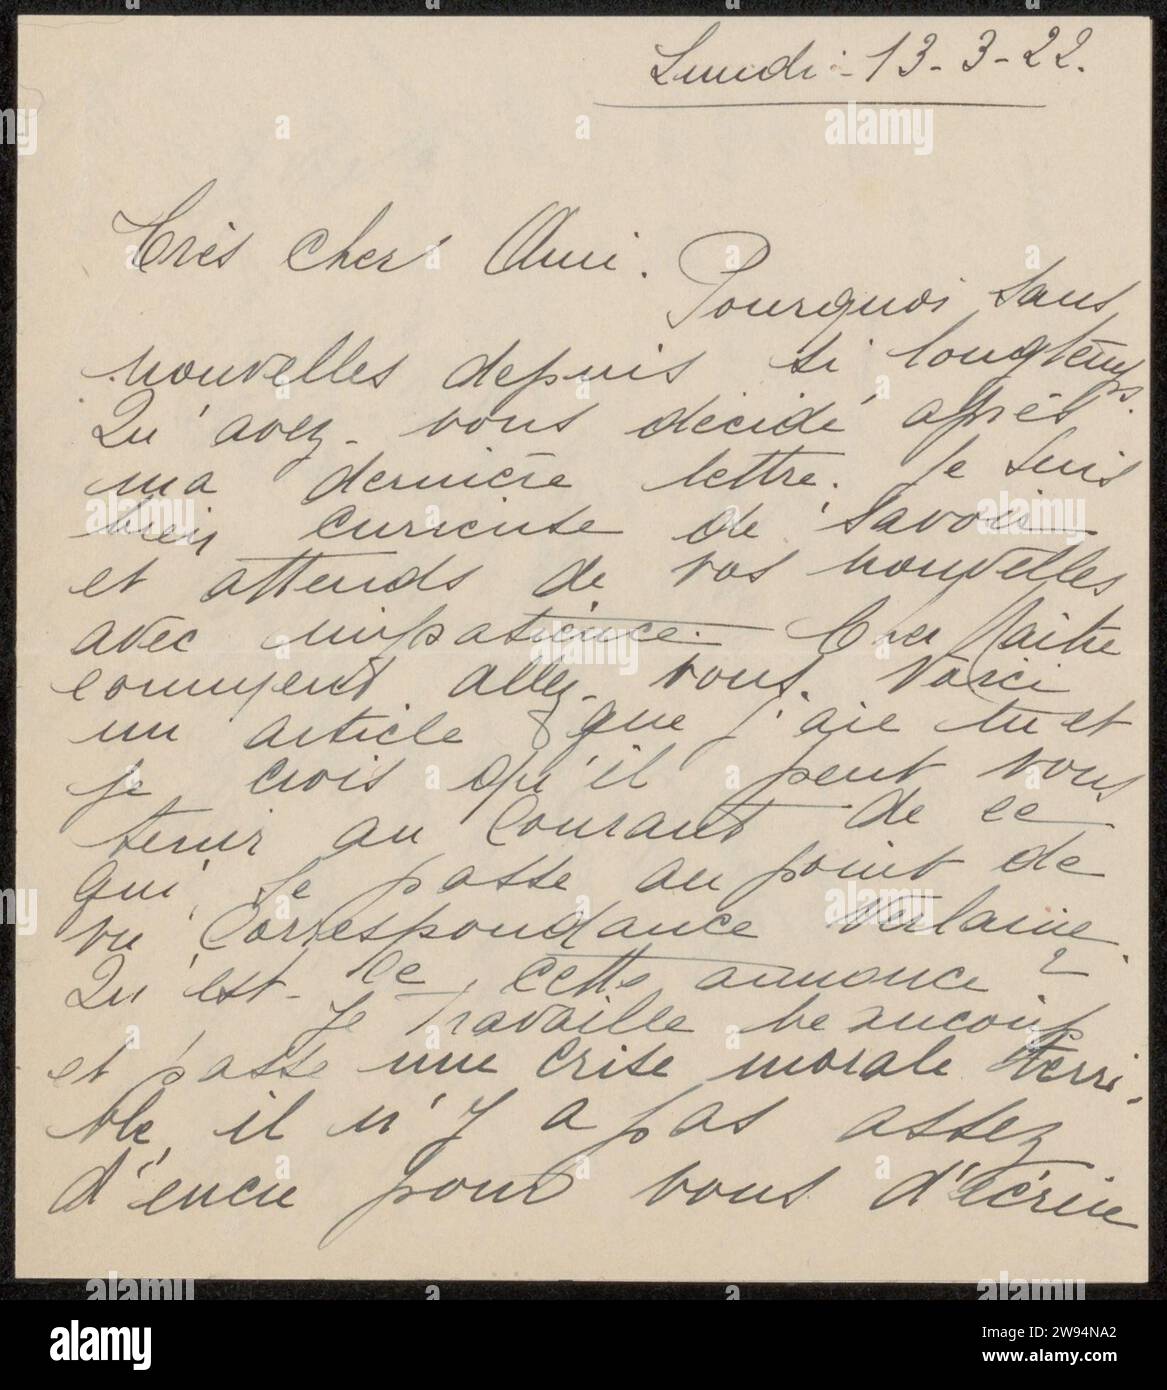 Lundi - 13-3-22.
Très cher Ami.
Pourquoi sans
nouvelles depuis si longtemps.
Qu'avez-vous décidé après
ma dernière lettre. Je suis
bien curieuse de savoir
et attends de vos nouvelles
avec impatience. Cher Maître
comment allez-vous. Voici
un article que j'aie lu et
je crois qu'il peut vous
tenir au courant de ce
qui se passe au point de
vu Correspondance Verlaine.
Qu'est-ce cette annonce?
Je travaille beaucoup
et passe une crise morale terri-
ble, il n'y a pas assez
d'encre pour vous décrire
alamy
Image ID: 2W94NA2
www.alamy.com